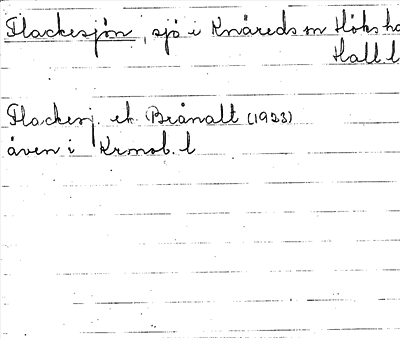 Flackesjön, sjö i Knäreds sn Höks hd
Hall l
Flackesj. ek Brånalt (1923)
även i Kronob. l